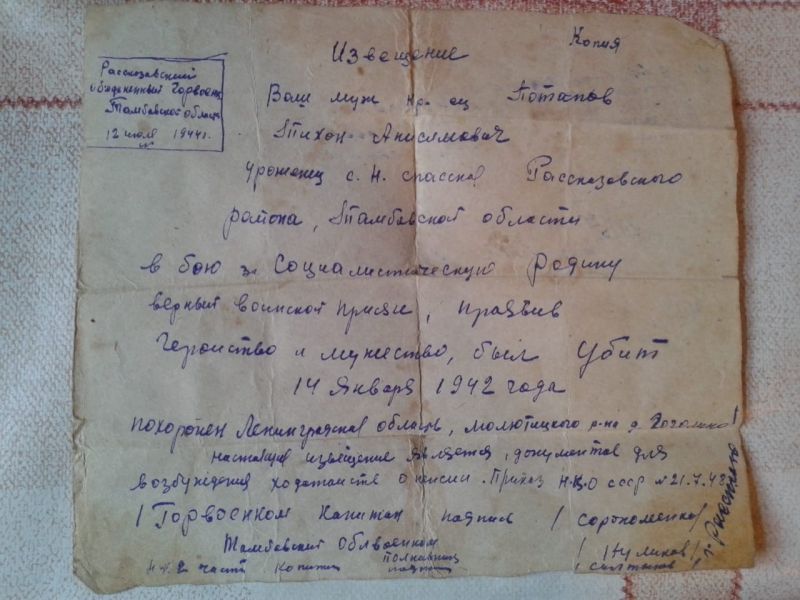 Копия
Извещение
Рассказовский
объединенный Горвоен
Тамбовской области
12 июля 1944 г.
Ваш муж кр-ец Потапов
Тихон Анисимович
Уроженец с. Н. спасское Рассказовского
района, Тамбовской области
в бою за Социалистическую Родину
верный воинской присяге, проявив
Геройство и мужество, был убит
14 Января 1942 года
похоронен Ленинградская область, молютицкого р-на д.
настоящее извещение является, документов для
возбуждения ходатайств о пенсии. Приказ Н.К.О СССР № 21.7.48
/ Горвоенком Капитан подпись /
г. Рассказово
Тамбовский Облвоенком
полковник
/ Куликов /
н-к 2 части Капитан подпись / Салтыков